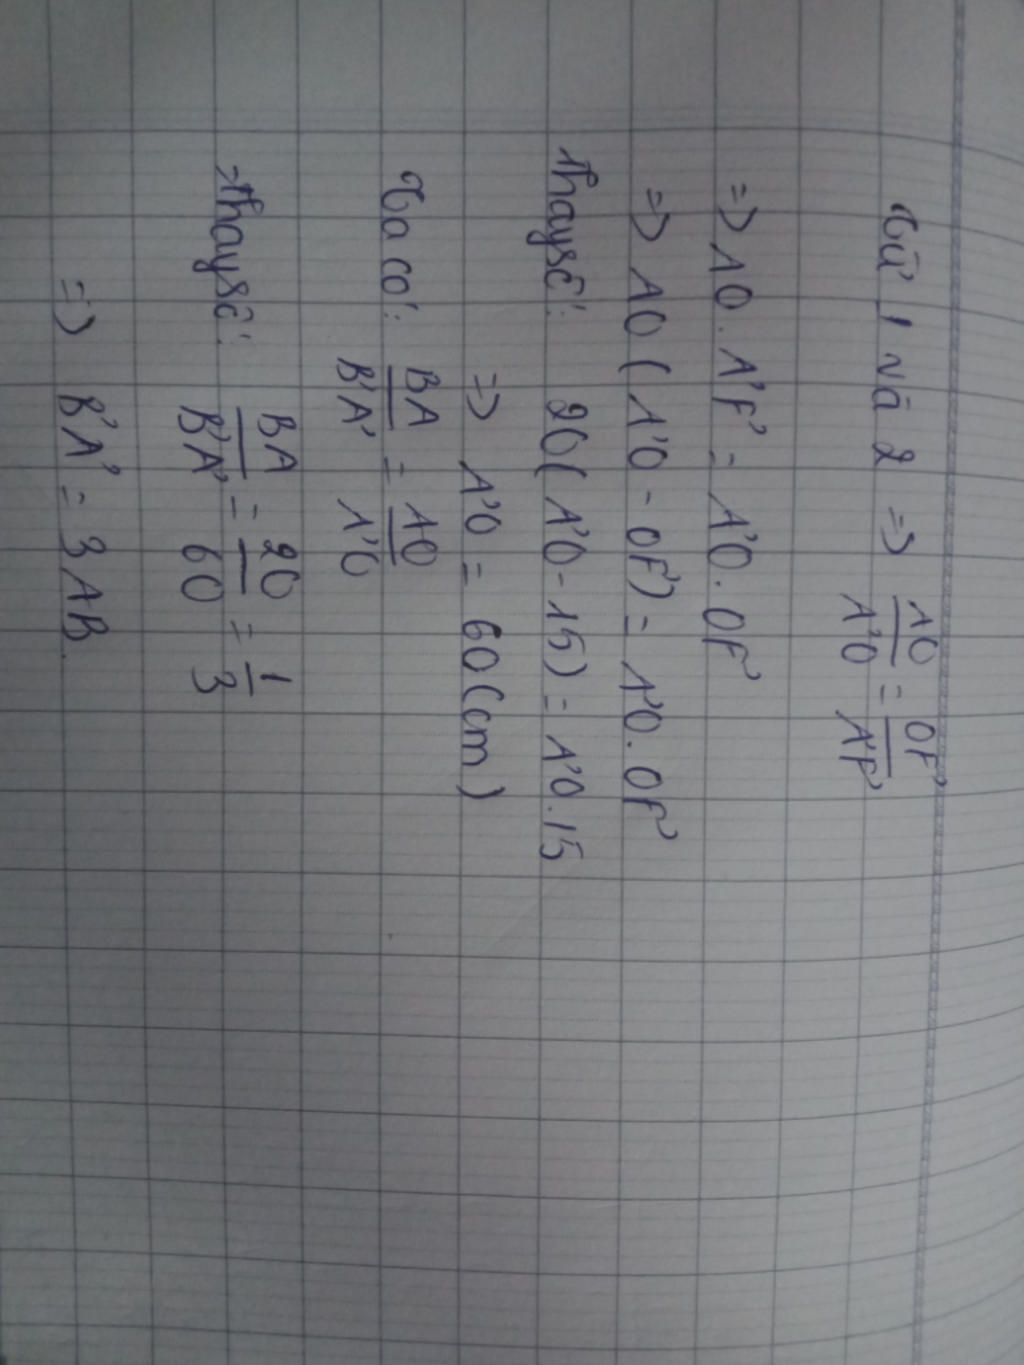 Từ 1 và 2 => AO/A'O = OF'/A'F'
=> AO. A'F' = A'O. OF'
=> AO ( A'O - OF') = A'O. OF'
Thay số: 20( A'O - 15) = A'O. 15
=> A'O = 60 (cm)
Ta có: BA/B'A' = AO/A'O
=> Thay số: BA/B'A' = 20/60 = 1/3
=> B'A' = 3 AB.